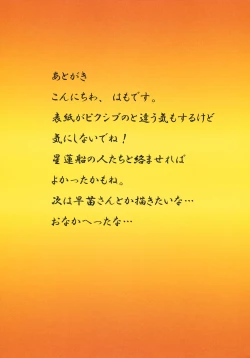 あとがき
こんにちわ、はもです。
表紙がピクシブのと違う気もするけど
気にしないでね！
星蓮船の人たちと絡ませれば
よかったかもね。
次は早苗さんとか描きたいな…
おなかへったな…